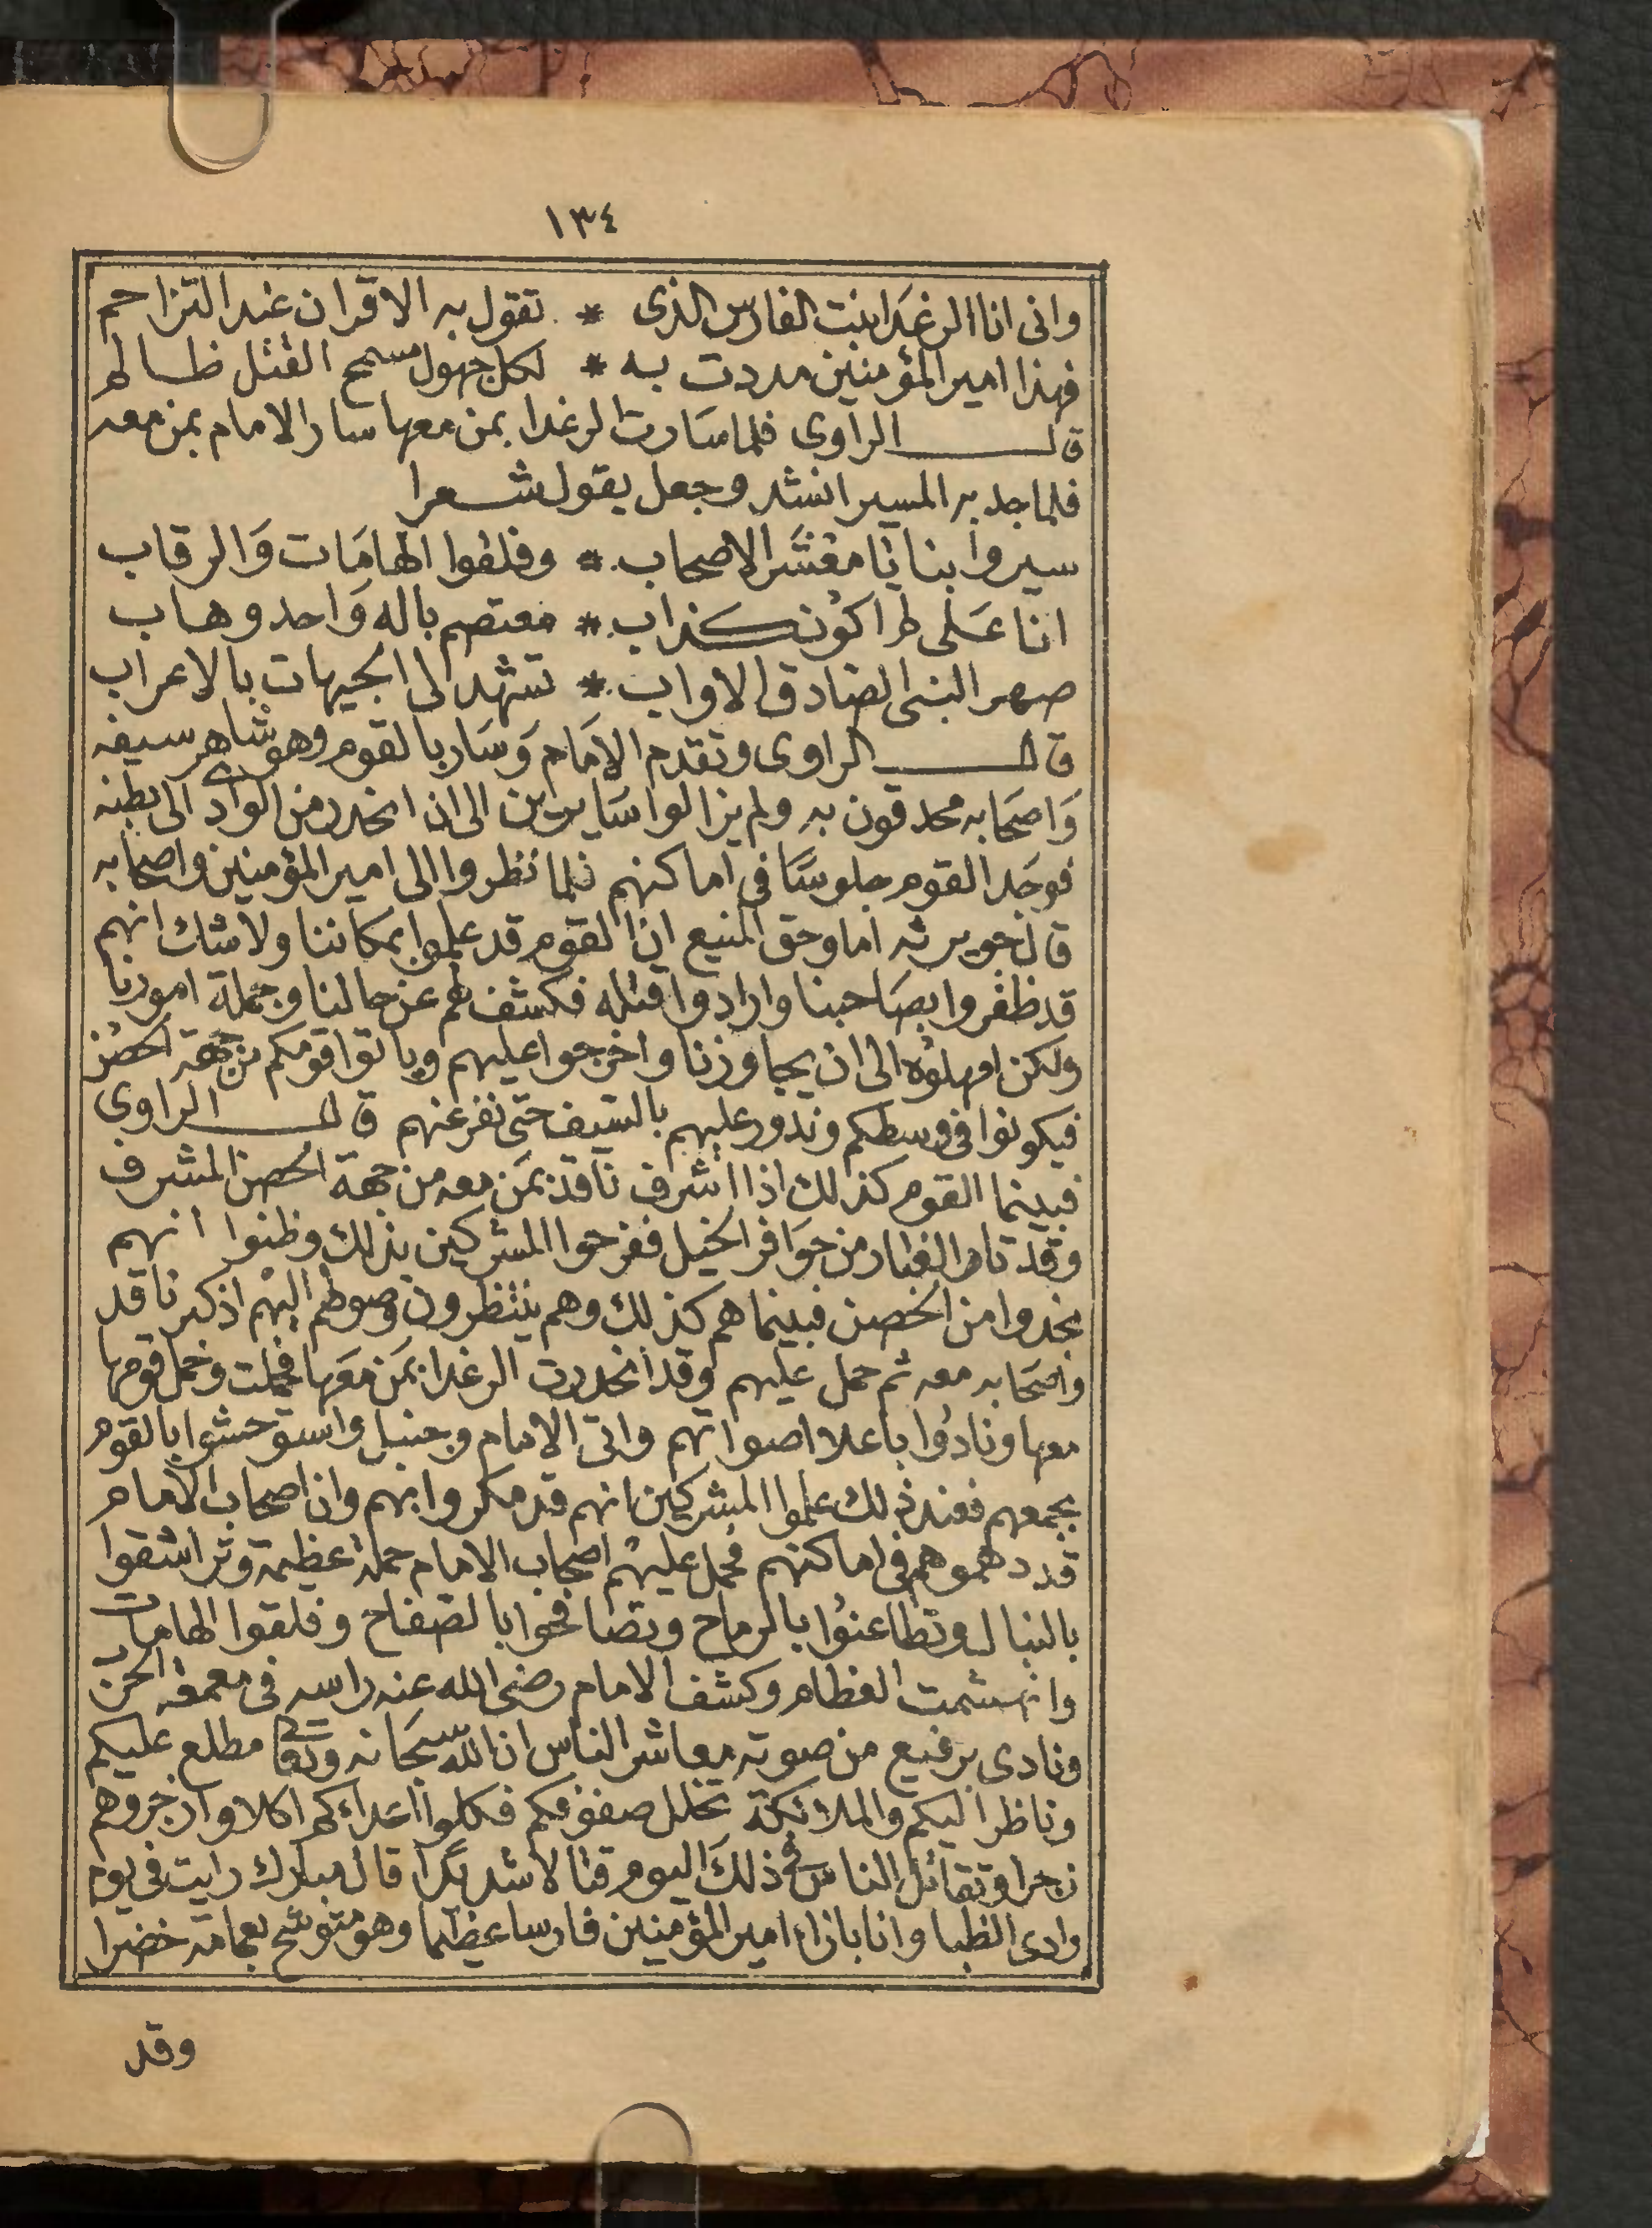 ١٣٤
وانى انا الرغدا بنت الفارس الذى * تقول به الاقران عند التزاحم
فهذا امير المؤمنين مددت به * لكل جهول مستح القتل ظالم
قال الراوى فلما سارت الرغدا بمن معها سار الامام بمن معه
فلما جد به المسير انشد وجعل يقول شعرا
سيروا بنا يا معشر الاصحاب * وفلقوا الهامات والرقاب
انا على لم اكون كذاب * معتصم باله واحد وهاب
صهر النبى الصادق الاواب * تشهد لى الجيهات بالاعراب
قال الراوى وتقدم الامام وسار بالقوم وهو شاهر سيفه
واصحابه محدقون به ولم يزالوا سايرين الى ان انحدر من الوادى الى بطنه
فوجد القوم جلوسا فى اماكنهم فلما نظروا الى امير المؤمنين واصحابه
قال جويرثه اما وحق المنيع ان القوم قد علموا بمكاننا ولا شك انهم
قد ظفروا بصاحبنا وارادوا قتله فكشف لهم عن حالنا وجملة امورنا
ولكن امهلوه الى ان يجاوزنا واخرجوا عليهم وياتوا قومكم من جهة الحصن
فيكونوا فى وسطكم وندور عليهم بالسيف حتى نفرغ عنهم قال الراوى
فبينما القوم كذلك اذا اشرف ناقد بمن معه من جهة الحصن المشرف
وقد ثار الغبار من حوافر الخيل ففرحوا المشركين بذلك وظنوا انهم
نجدوا من الحصن فبينما هم كذلك وهم ينتظرون وصولهم اليهم اذ كبر ناقد
واصحابه معه ثم حمل عليهم وقد انحدرت الرغدا بمن معها فحملت وحمل قومها
معها ونادوا باعلا اصواتهم واتى الامام وجنبل واستوحشوا بالقوم
بجمعهم فعند ذلك علموا المشركين انهم قد مكروا بهم وان اصحاب الامام
قد دهموهم فى اماكنهم فحمل عليهم اصحاب الامام حملة عظيمة وتراشقوا
بالنبال وتطاعنوا بالرماح وتصافحوا بالصفاح وفلقوا الهامات
وانهشمت العظام وكشف الامام رضى الله عنه راسه فى معمعة الحرب
ونادى برفيع من صوته معاشر الناس ان الله سبحانه وتعالى مطلع عليكم
وناظر اليكم والملائكة تخلل صفوفكم فكلوا اعداءكم اكلا وازجروهم
زجرا وتقاتل الناس فى ذلك اليوم قتالا شديدا قال مبارك رايت فى يوم
وادى الظبا وانا بازاء امير المؤمنين فارسا عظيما وهو متوشح بعمامة خضرا
وقد